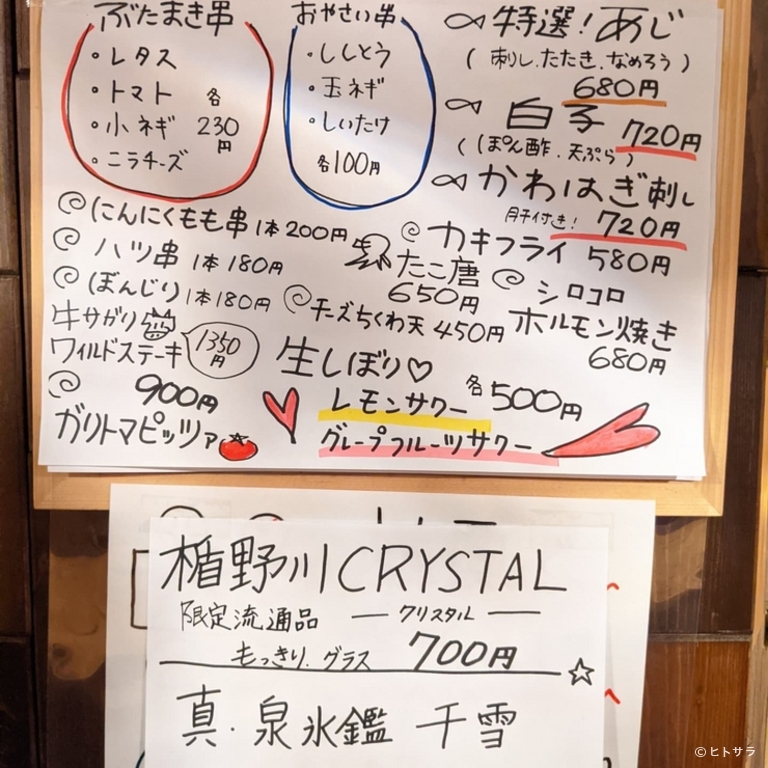 ぶたまき串
・レタス
・トマト
・小ネギ
・ニラチーズ
各
230
円
おやさい串
・ししとう
・玉ネギ
・しいたけ
各100円
特選!あじ
(刺し.たたき.なめろう)
680円
白子
720円
(ぽん酢.天ぷら)
かわはぎ刺し
肝付き!
720円
にんにくもも串 1本200円
ハツ串 1本180円
ぼんじり 1本180円
カキフライ 580円
たこ唐
650円
シロコロ
ホルモン焼き
680円
チーズちくわ天 450円
牛サガリ
ワイルドステーキ
1350
円
900円
ガリトマピッツァ
生しぼり♡
レモンサワー
グレープフルーツサワー
各500円
楯野川CRYSTAL
限定流通品 ― クリスタル ―
もっきり.グラス 700円
真.泉氷鑑 千雪
©ヒトサラ